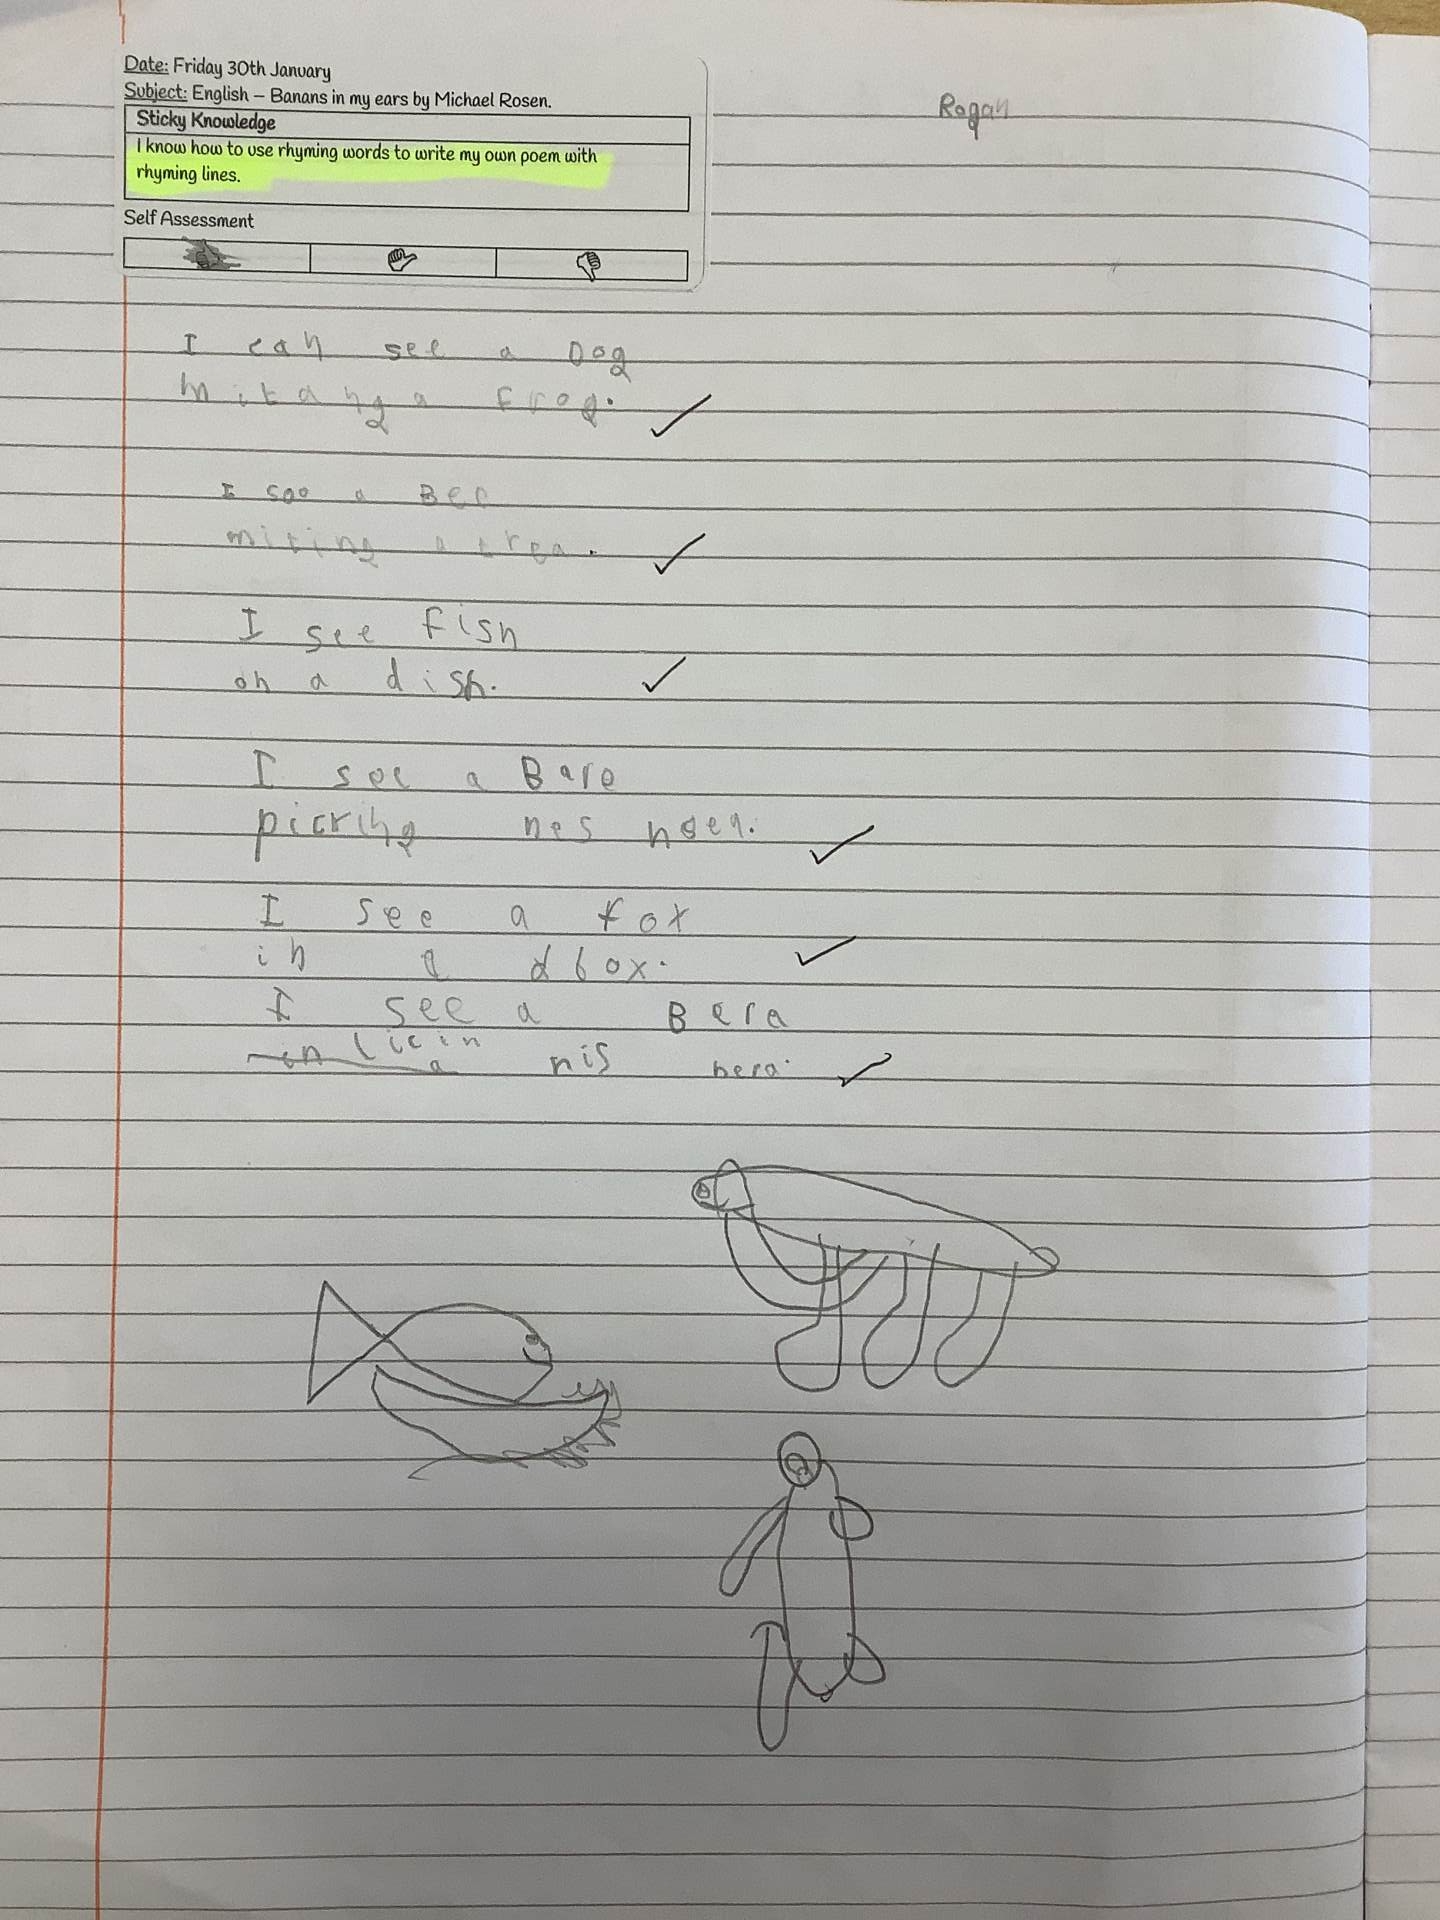 Date: Friday 30th January
Subject: English – Banans in my ears by Michael Rosen.
Rogan
Sticky Knowledge
I know how to use rhyming words to write my own poem with
rhyming lines.
Self Assessment
I can see a Dog
mitang a frog.
I see a Bee
miting a trea.
I see fish
on a dish.
I see a Bare
picking hes
I see a fox
in a box.
I see a Bera
licin
nis hera.